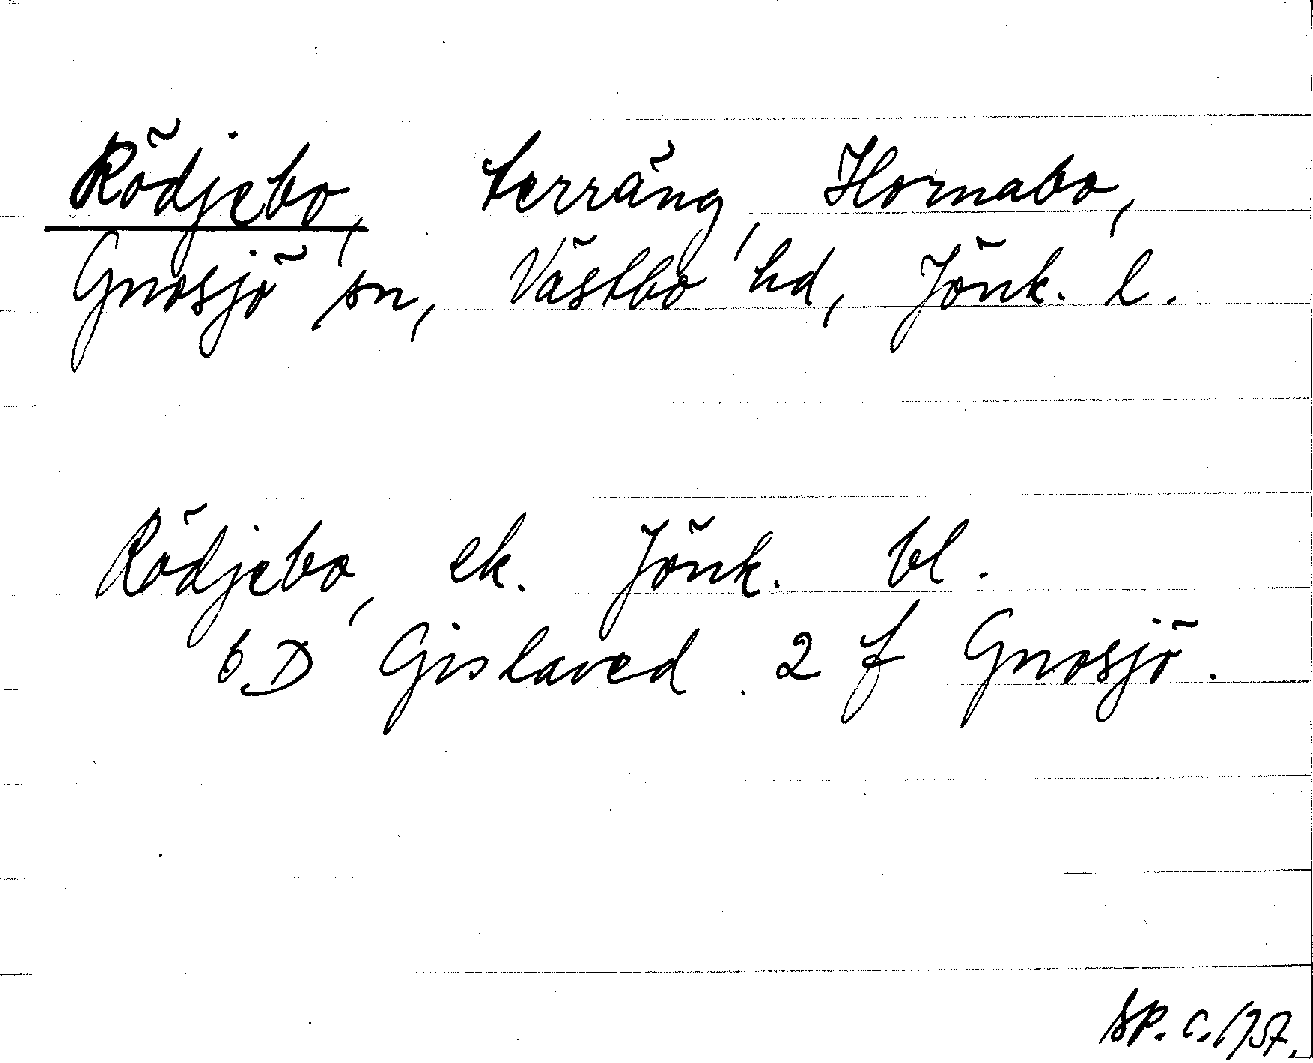 Rödjebo, terräng, Hornabo,
Gnosjö sn, Västbo hd, Jönk. l.
Rödjebo, ek. Jönk. bl.
6 D Gislaved 2 f Gnosjö.